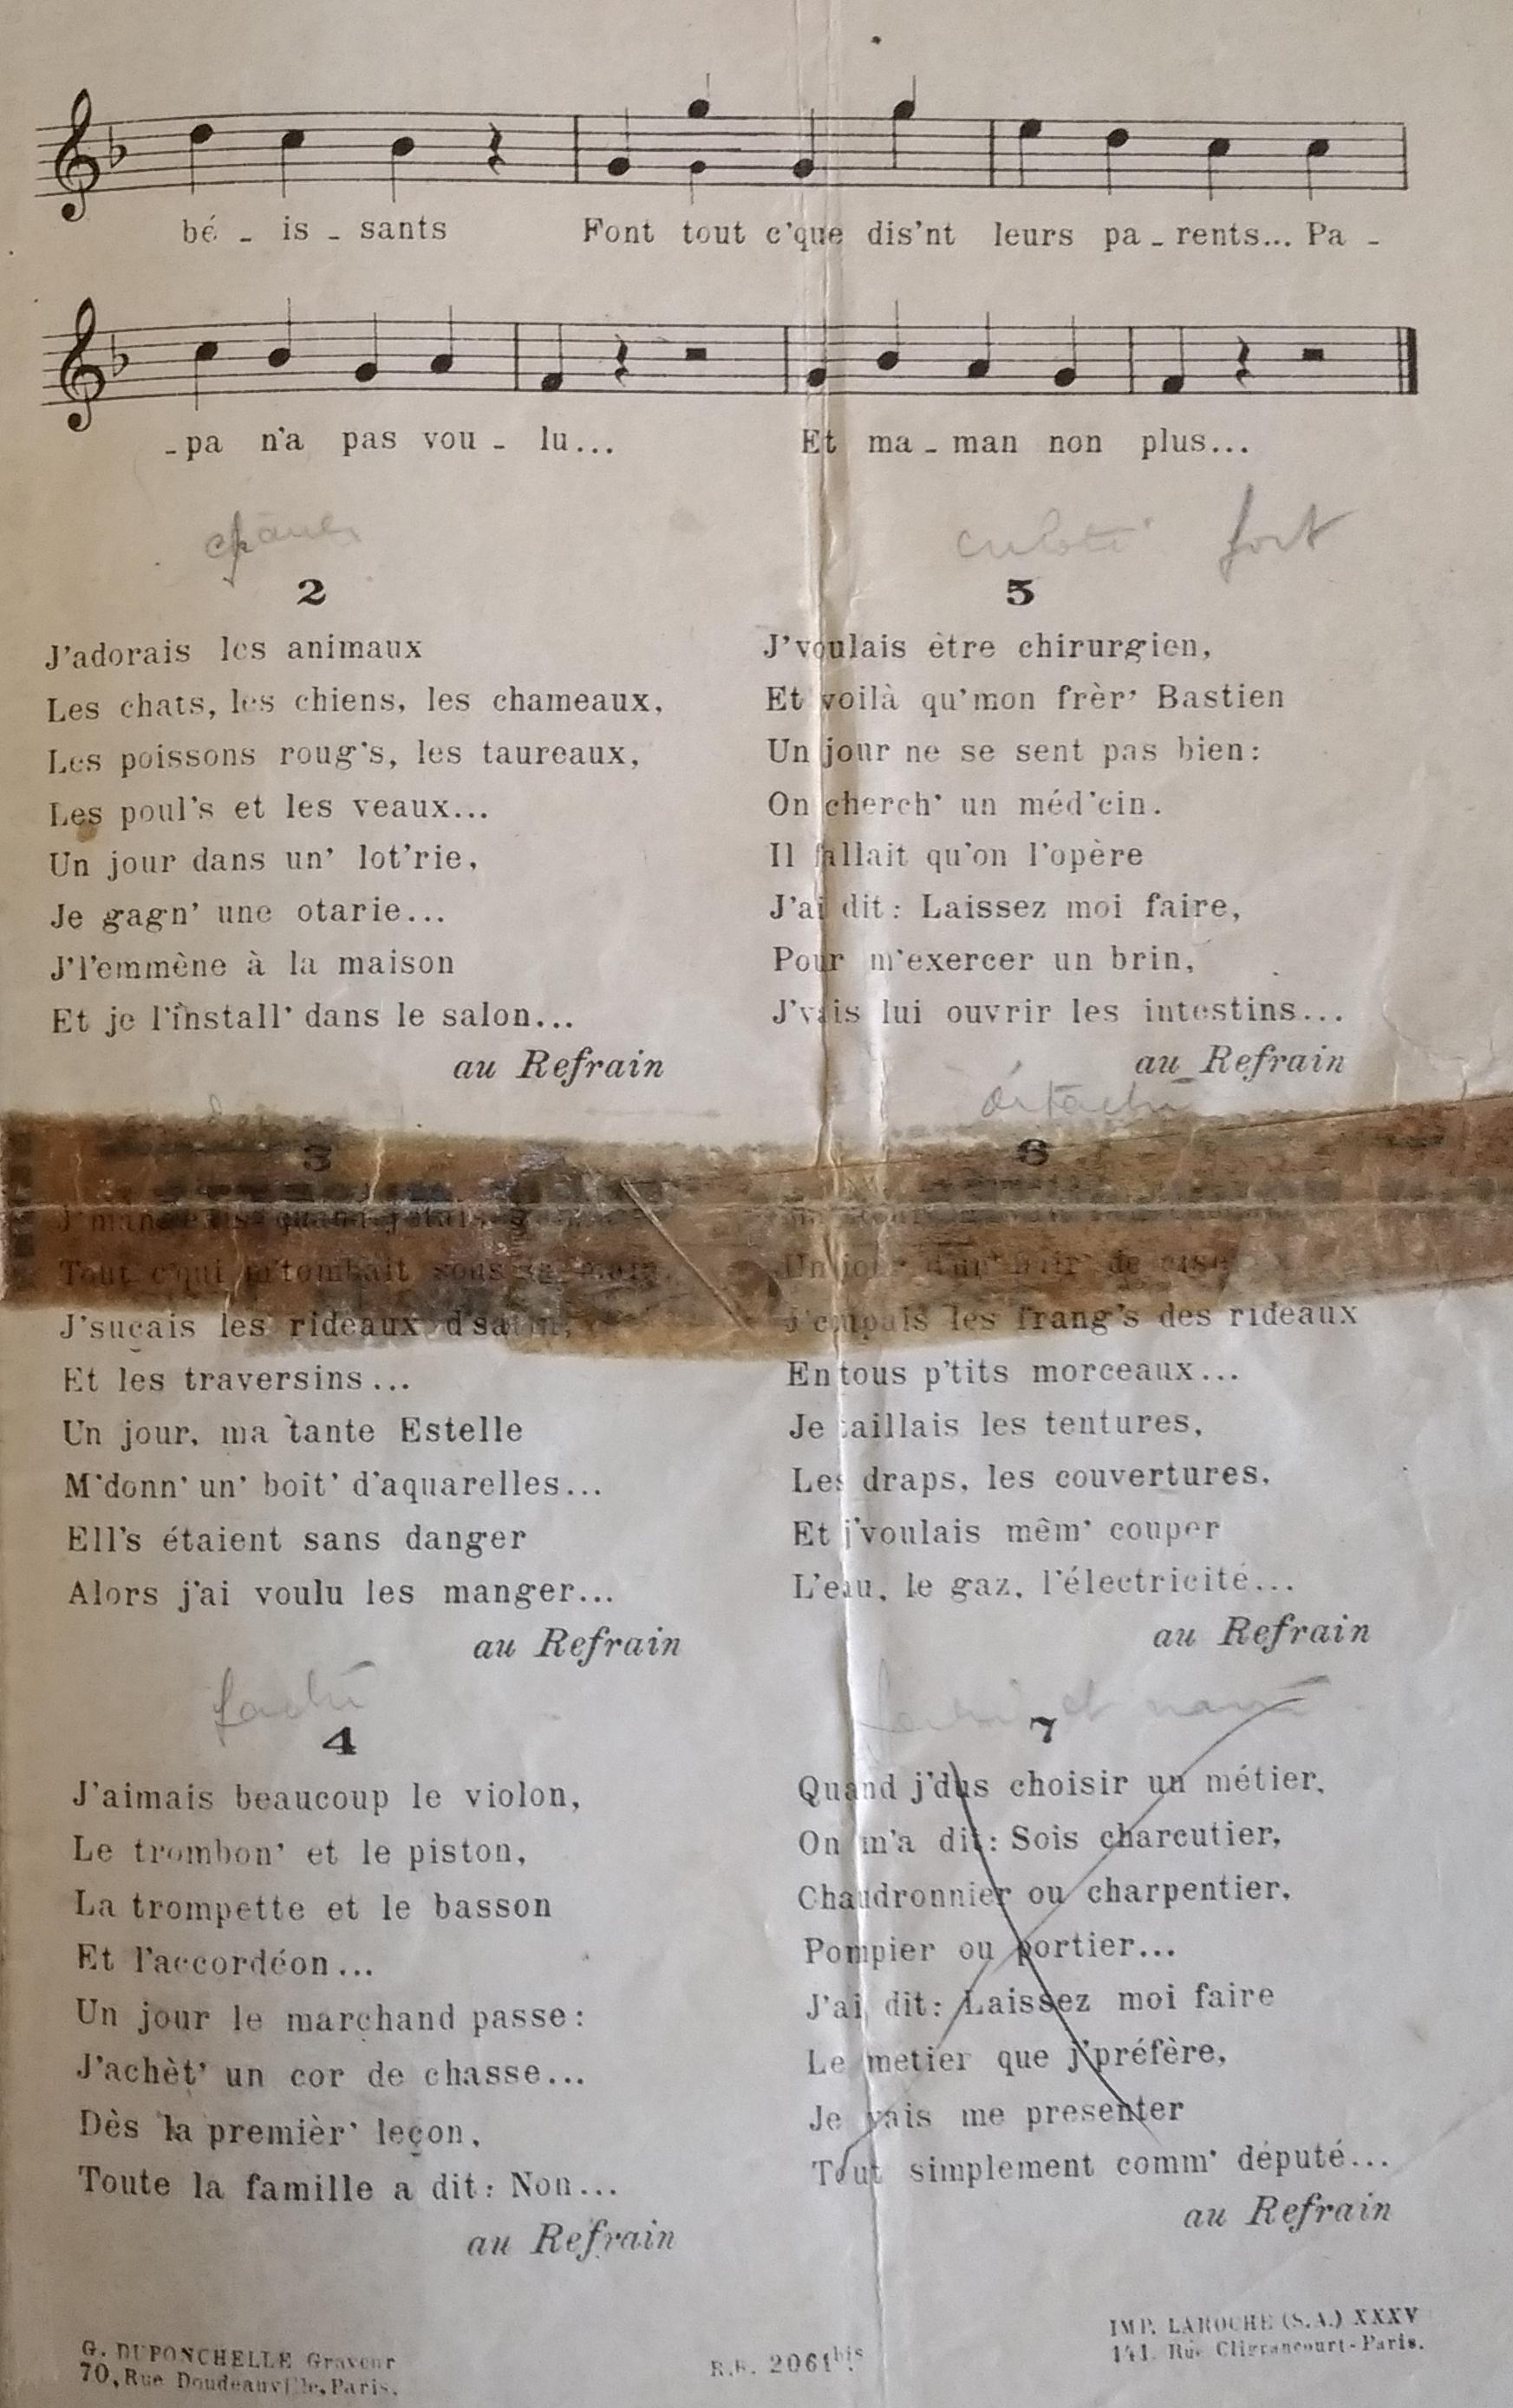 bé - is - sants Font tout c'que dis'nt leurs pa - rents... Pa -
- pa n'a pas vou - lu... Et ma - man non plus...
2
J'adorais les animaux
Les chats, les chiens, les chameaux,
Les poissons roug's, les taureaux,
Les poul's et les veaux...
Un jour dans un' lot'rie,
Je gagn' une otarie...
J'l'emmène à la maison
Et je l'install' dans le salon...
au Refrain
3
J'mangeais quand j'étais
Tout c'qui m'tombait sous la main,
J'suçais les rideaux d'satin,
Et les traversins...
Un jour, ma tante Estelle
M'donn' un' boit' d'aquarelles...
Ell's étaient sans danger
Alors j'ai voulu les manger...
au Refrain
faché
4
J'aimais beaucoup le violon,
Le trombon' et le piston,
La trompette et le basson
Et l'accordéon...
Un jour le marchand passe:
J'achèt' un cor de chasse...
Dès la premièr' leçon,
Toute la famille a dit: Non...
au Refrain
culotté fort
5
J'voulais être chirurgien,
Et voilà qu'mon frèr' Bastien
Un jour ne se sent pas bien:
On cherch' un méd'cin.
Il fallait qu'on l'opère
J'ai dit: Laissez moi faire,
Pour m'exercer un brin,
J'vais lui ouvrir les intestins...
au Refrain
détaché
6
Un jour d'un' pair' de
J'coupais les frang's des rideaux
En tous p'tits morceaux...
Je taillais les tentures,
Les draps, les couvertures,
Et j'voulais mêm' couper
L'eau, le gaz, l'électricité...
au Refrain
et
7
Quand j'dus choisir un métier,
On m'a dit: Sois charcutier,
Chaudronnier ou charpentier,
Pompier ou portier...
J'ai dit: Laissez moi faire
Le metier que j'préfère,
Je vais me presenter
Tout simplement comm' député...
au Refrain
G. DUPONCHELLE Graveur
70, Rue Doudeauville, Paris.
R.R. 2061 bis
IMP. LAROCHE (S.A.) XXXV
141. Rue Clignancourt - Paris.